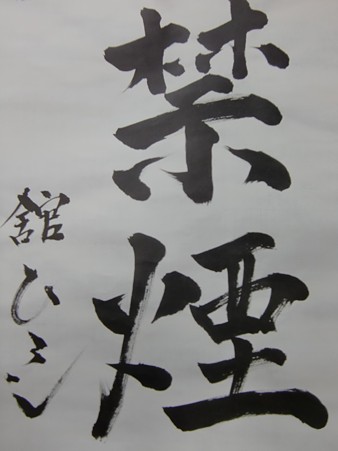 禁煙
舘ひろし